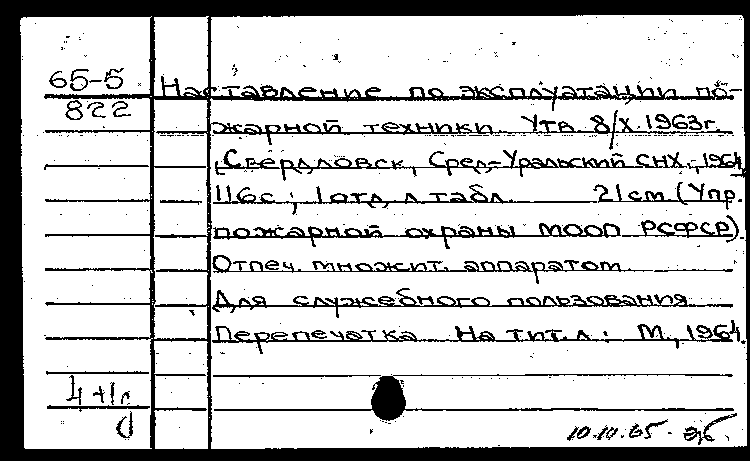 65-5
822
Наставление по эксплуатации по-
жарной техники. Утв. 8/X.1963г.
[Свердловск, Сред.-Уральский СНХ, 1964]
116с.; 1 отд. л. табл. 21 см (Упр.
пожарной охраны МООП РСФСР)
Отпеч. множит. аппаратом
Для служебного пользования
Перепечатка На тит. л.: М., 1964.
4+1г